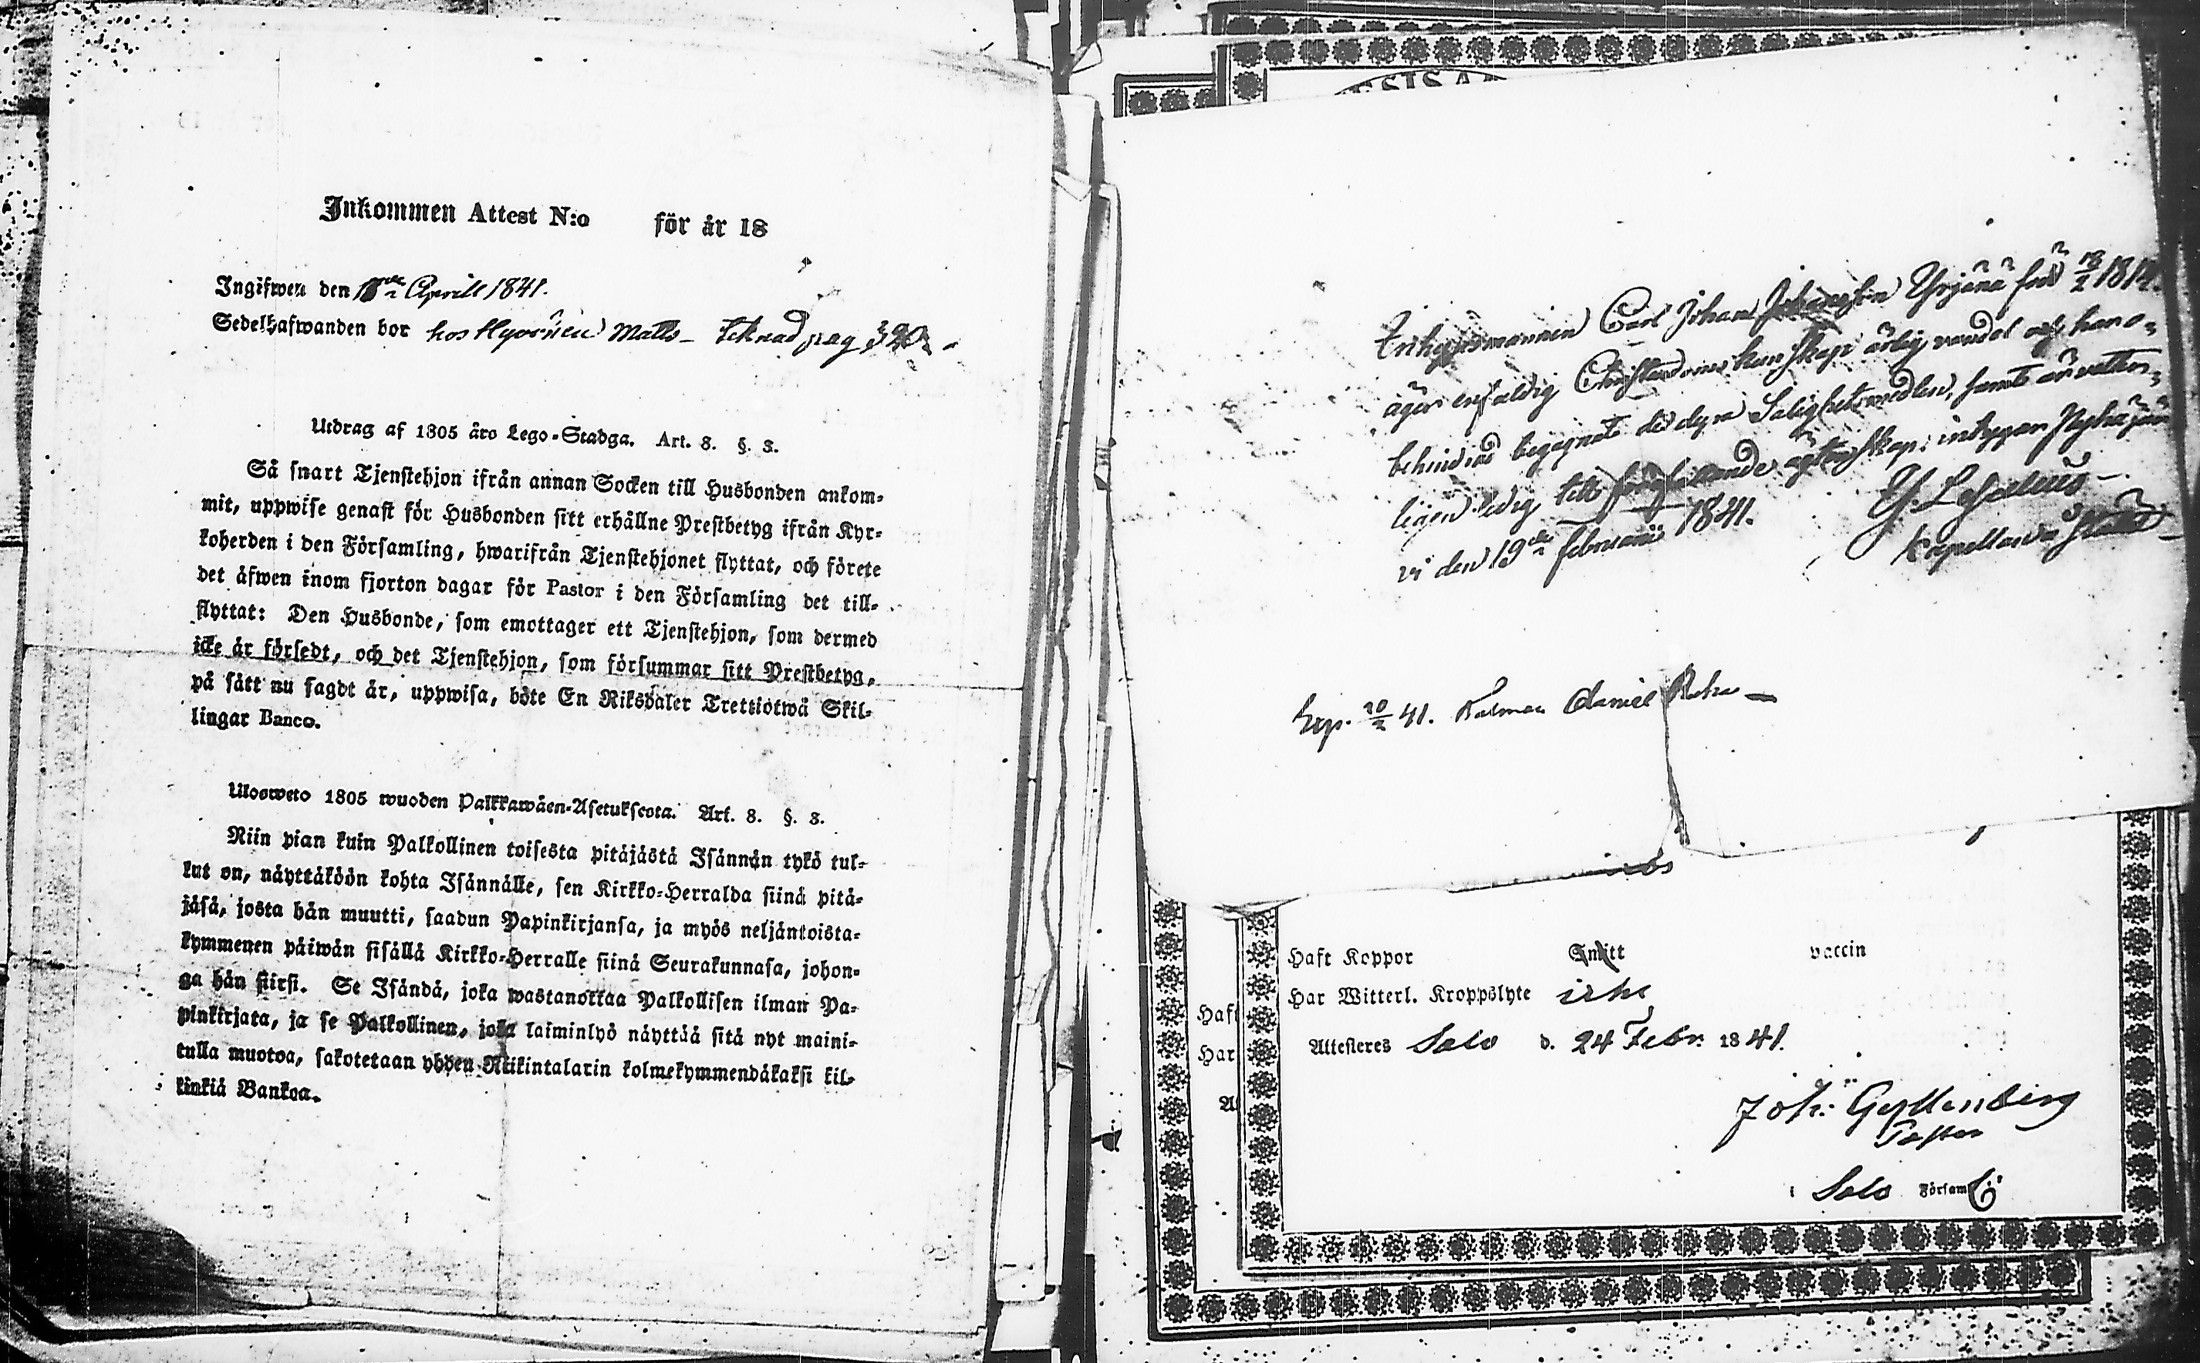 Inkommen Attest N:o för år 18
Ingifwen den 18de Aprill 1841.
Sedelhafwanden bor hos Hyvönen Matts – teknad pag 320
Utdrag af 1805 års Lego-Stadga. Art. 8. §. 3.
Så snart Tjenstehjon ifrån annan Socken till Husbonden ankom-
mit, uppwise genast för Husbonden sitt erhållne Prestbetyg ifrån Kyr-
koherden i den Församling, hwarifrån Tjenstehjonet flyttat, och förete
det äfwen inom fjorton dagar för Pastor i den Församling det till-
flyttat: Den Husbonde, som emottager ett Tjenstehjon, som dermed
icke är försedt, och det Tjenstehjon, som försummar sitt Prestbetyg,
på sätt nu sagdt är, uppwisa, böte En Riksdaler Trettiotwå Skil-
lingar Banco.
Ulosweto 1805 wuoden Palkkawäen-Asetuksesta. Art. 8. §. 3.
Niin pian kuin Palkollinen toisesta pitäjästä Isännän tykö tul-
kut on, näyttäköön kohta Isännälle, sen Kirkko-Herralda siinä pitä-
jäsä, josta hän muutti, saadun Papinkirjansa, ja myös neljäntoista-
kymmenen päiwän sisällä Kirkko-Herralle siinä Seurakunnasa, johon-
ga hän siirsi. Se Isändä, joka wastanottaa Palkollisen ilman Pa-
pinkirjata, ja se Palkollinen, joka laiminlyö näyttää sitä nyt maini-
tulla muotoa, sakotetaan yhden Riikintalarin kolmekymmendäkaksi kil-
linkiä Bankoa.
Inhysesmannen Carl Johan Johansson Yrjänä född 18/2 1812.
äger enfaldig Christendomskunskap ärlig vandel och har o-
behindrad begagnat de dyra Salighetsmedlen, samt är vetter-
ligen ledig till äktenskap; intygar
den 19de februarii 1841.
Kapellan
Exp. 20/2 41. Kalman Daniel
Haft Koppor Snitt vaccin
Har Witterl. Kroppslyte icke
Attesteres Salo d. 24 Febr. 1841.
Joh: Gyllenberg
Pastor
i Salo Församl
Haft
Har